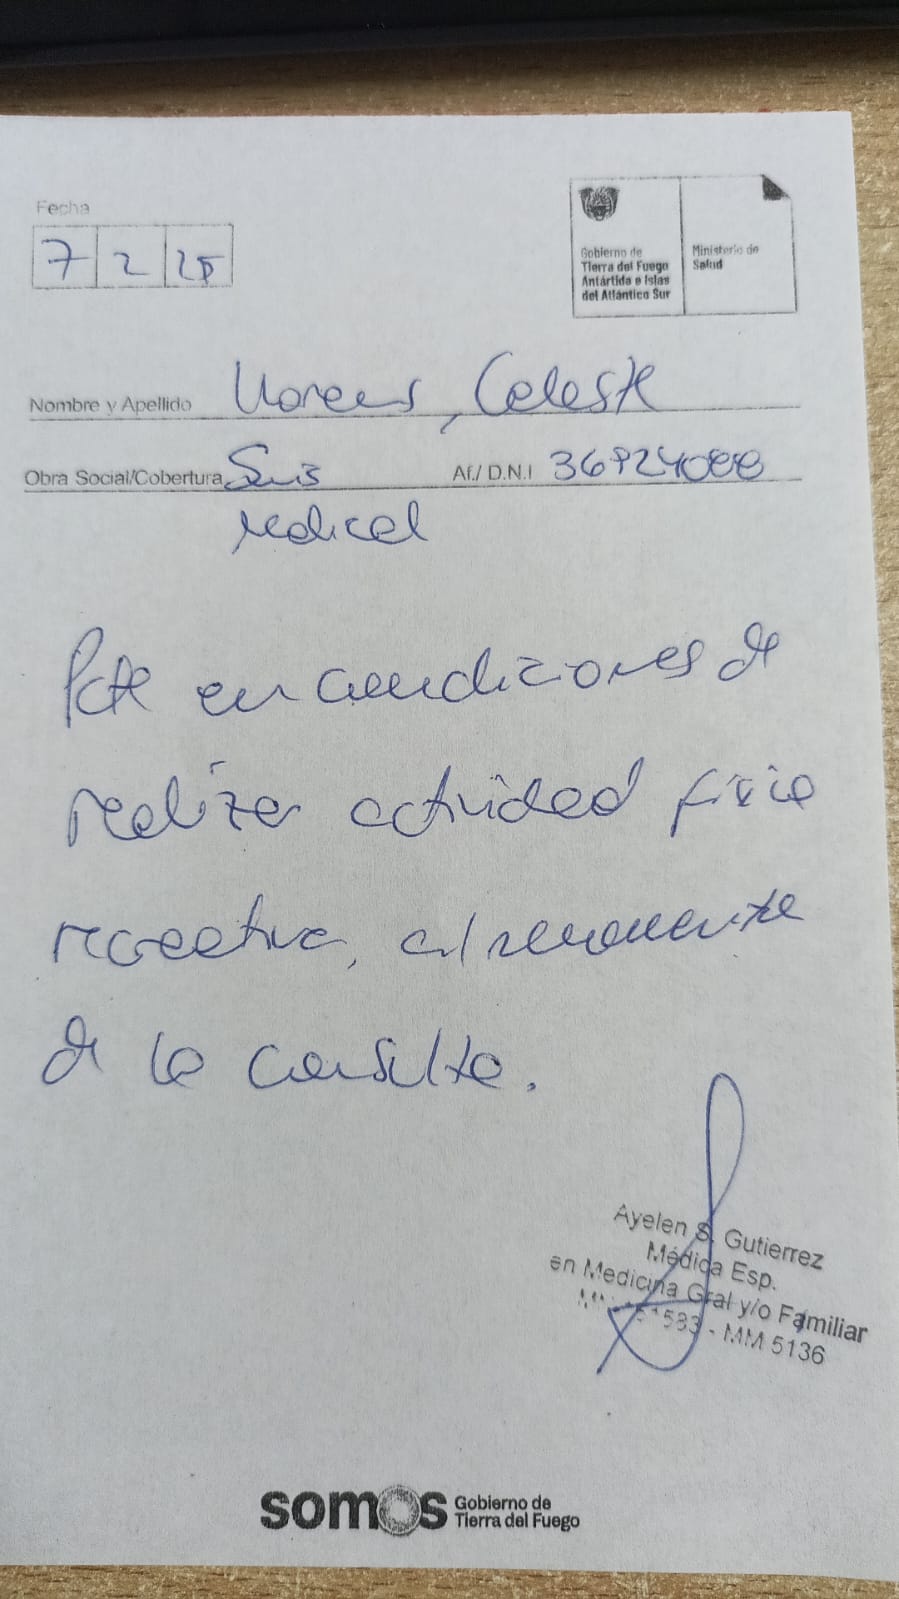 Fecha
7 2 25
Gobierno de
Tierra del Fuego
Antártida e Islas
del Atlántico Sur
Ministerio de
Salud
Nombre y Apellido , Celeste
Obra Social/Cobertura Swis Af./ D.N.I
Medical
Pcte en condiciones de
realizar actividad física
recreativa, al momento
de la consulta.
Ayelen S. Gutierrez
Médica Esp.
en Medicina Gral y/o Familiar
- MM 5136
somos Gobierno de
Tierra del Fuego